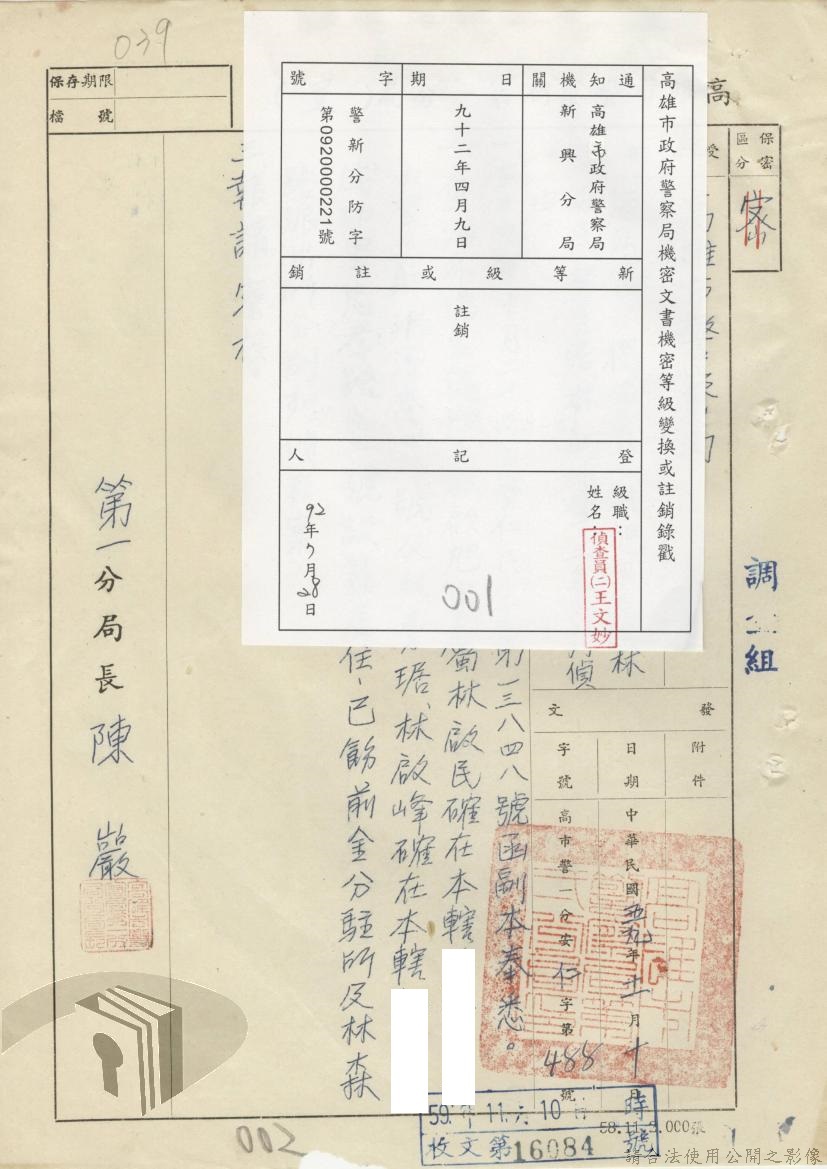 039
保存期限
檔號
高
保密區分
密
受
高雄市政府警察局機密文書機密等級變換或註銷錄戳
通知機關
高雄市政府警察局
新興分局
日期
九十二年四月九日
字號
警新分防字
第0920000221號
新等級或註銷
註銷
登記人
級職：
姓名：
偵查員(二)王文妙
001
調
組
林
偵
發文
附件
日期
中華民國五九年十一月十日
字號
高市警一分安仁字第488號
第一三八四八號函副本奉悉。
林啟民確在本轄
琚、林啟峰確在本轄
住，已飭前金分駐所及林森
第一分局長 陳巖
59.年11.六10日
時
收文第16084號
002
請合法使用公開之影像